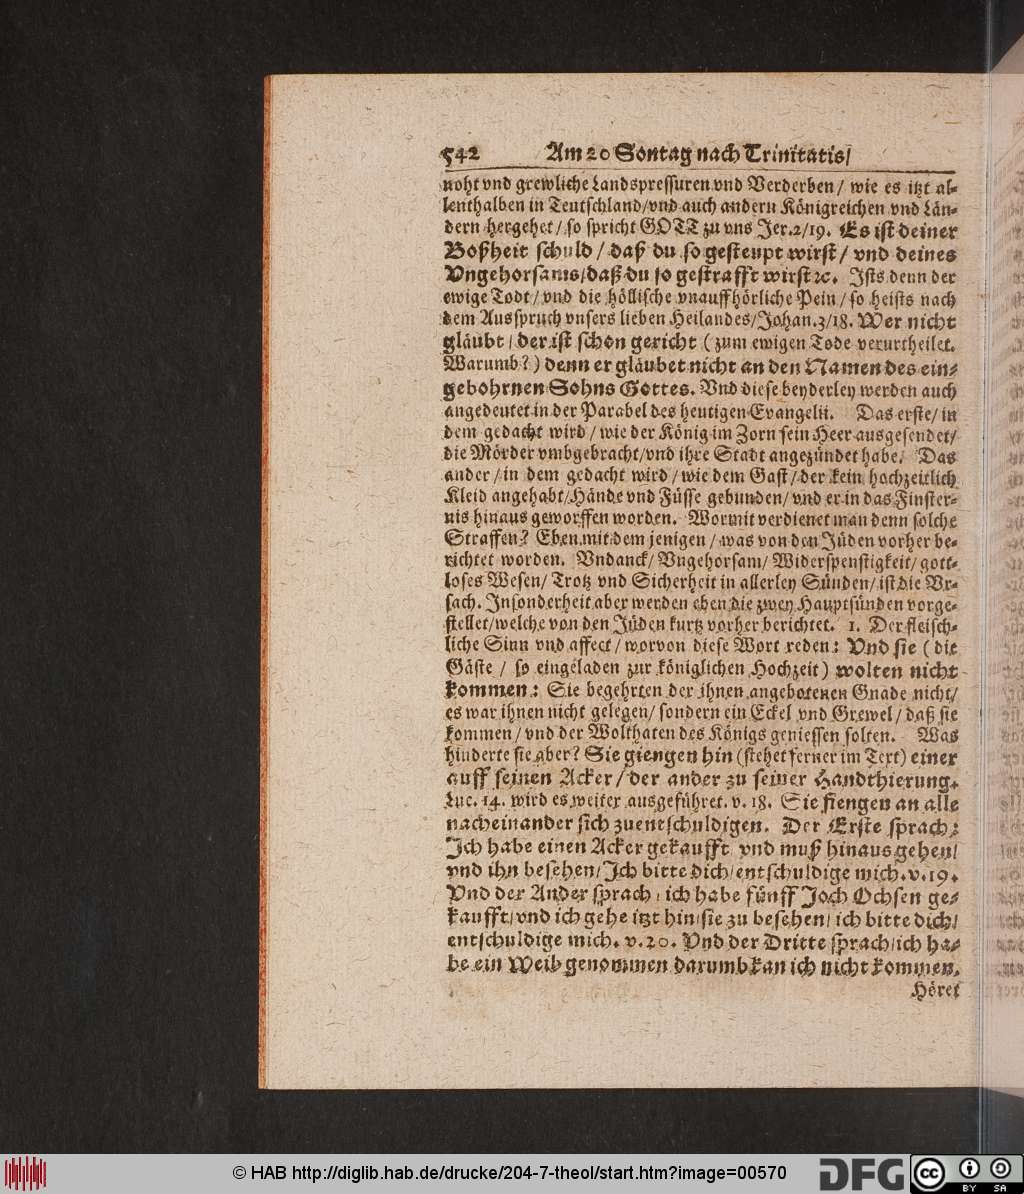 542 Am 20 Sontag nach Trinitatis/
noht vnd grewliche Landspressuren vnd Verderben/ wie es itzt al-
lenthalben in Teutschland/vnd auch andern Königreichen vnd Län-
dern hergehet/ so spricht GOTT zu vns Jer.2/19. Es ist deiner
Boßheit schuld/ daß du so gesteupt wirst/ vnd deines
Vngehorsams/daß du so gestrafft wirst ꝛc. Ists denn der
ewige Todt/ vnd die höllische vnauffhörliche Pein/ so heists nach
dem Ausspruch vnsers lieben Heilandes/Johan.3/18. Wer nicht
gläubt/ der ist schon gericht (zum ewigen Tode verurtheilet.
Warumb?) denn er gläubet nicht an den Namen des ein-
gebohrnen Sohns Gottes. Vnd diese beyderley werden auch
angedeutet in der Parabel des heutigen Evangelii. Das erste/ in
dem gedacht wird/ wie der König im Zorn sein Heer ausgesendet/
die Mörder vmbgebracht/vnd ihre Stadt angezündet habe. Das
ander/ in dem gedacht wird/ wie dem Gast/ der kein hochzeitlich
Kleid angehabt/Hände vnd Füsse gebunden/ vnd er in das Finster-
nis hinaus geworffen worden. Wormit verdienet man denn solche
Straffen? Eben mit dem jenigen/ was von den Jüden vorher be-
richtet worden. Vndanck/ Vngehorsam/ Widerspenstigkeit/ gott-
loses Wesen/ Trotz vnd Sicherheit in allerley Sünden/ ist die Vr-
sach. Insonderheit aber werden eben die zwey Hauptsünden vorge-
stellet/welche von den Jüden kurtz vorher berichtet. 1. Der fleisch-
liche Sinn vnd affect/ worvon diese Wort reden: Vnd sie (die
Gäste/ so eingeladen zur königlichen Hochzeit) wolten nicht
kommen: Sie begehrten der ihnen angebotenen Gnade nicht/
es war ihnen nicht gelegen/ sondern ein Eckel vnd Grewel/ daß sie
kommen/ vnd der Wolthaten des Königs geniessen solten. Was
hinderte sie aber? Sie giengen hin (stehet ferner im Text) einer
auff seinen Acker/ der ander zu seiner Handthierung.
Luc. 14. wird es weiter ausgeführet. v. 18. Sie fiengen an alle
nacheinander sich zuentschuldigen. Der Erste sprach:
Ich habe einen Acker gekaufft vnd muß hinaus gehen/
vnd ihn besehen/ Ich bitte dich/ entschuldige mich. v. 19.
Vnd der Ander sprach/ ich habe fünff Joch Ochsen ge-
kaufft/ vnd ich gehe itzt hin/ sie zu besehen/ ich bitte dich/
entschuldige mich. v. 20. Vnd der Dritte sprach/ ich ha-
be ein Weib genommen darumb kan ich nicht kommen.
Höret
© HAB http://diglib.hab.de/drucke/204-7-theol/start.htm?image=00570
DFG
cc BY SA